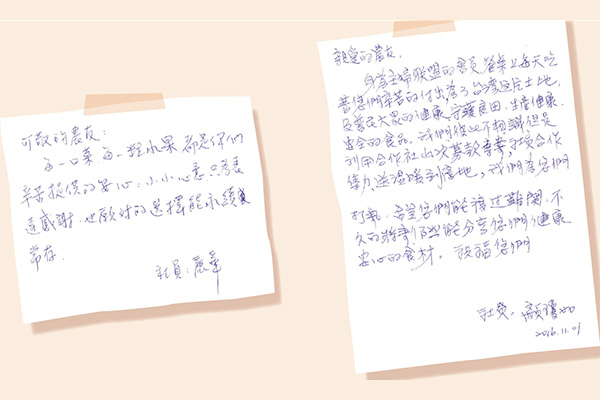 可敬的農友:
每一口菜每一粒水果都是你們
辛苦提供的安心,小小心意只為表
達感謝,也願對的選擇能永續
常存。
社員:麗華
親愛的農友.
身為主婦聯盟的會員餐桌上每天吃
著您們辛苦的付出,為了台灣這片土地,
及普羅大眾的健康,守護良田、生產健康、
安全的食品。我們彼此不相識但是
利用合作社此次募款專案,社員合作
傳力,送溫暖到當地,我們為您們
打氣,希望您們能渡過難關,不
久的將來仍然能分享您們健康
安心的食材。祝福您們
社員.
2016.11.01